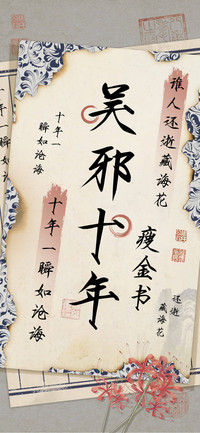 谁人还逝藏海花
吴邪十年
十年一
瞬如沧海
瘦金书
十年一瞬如沧海
还逝
藏海花